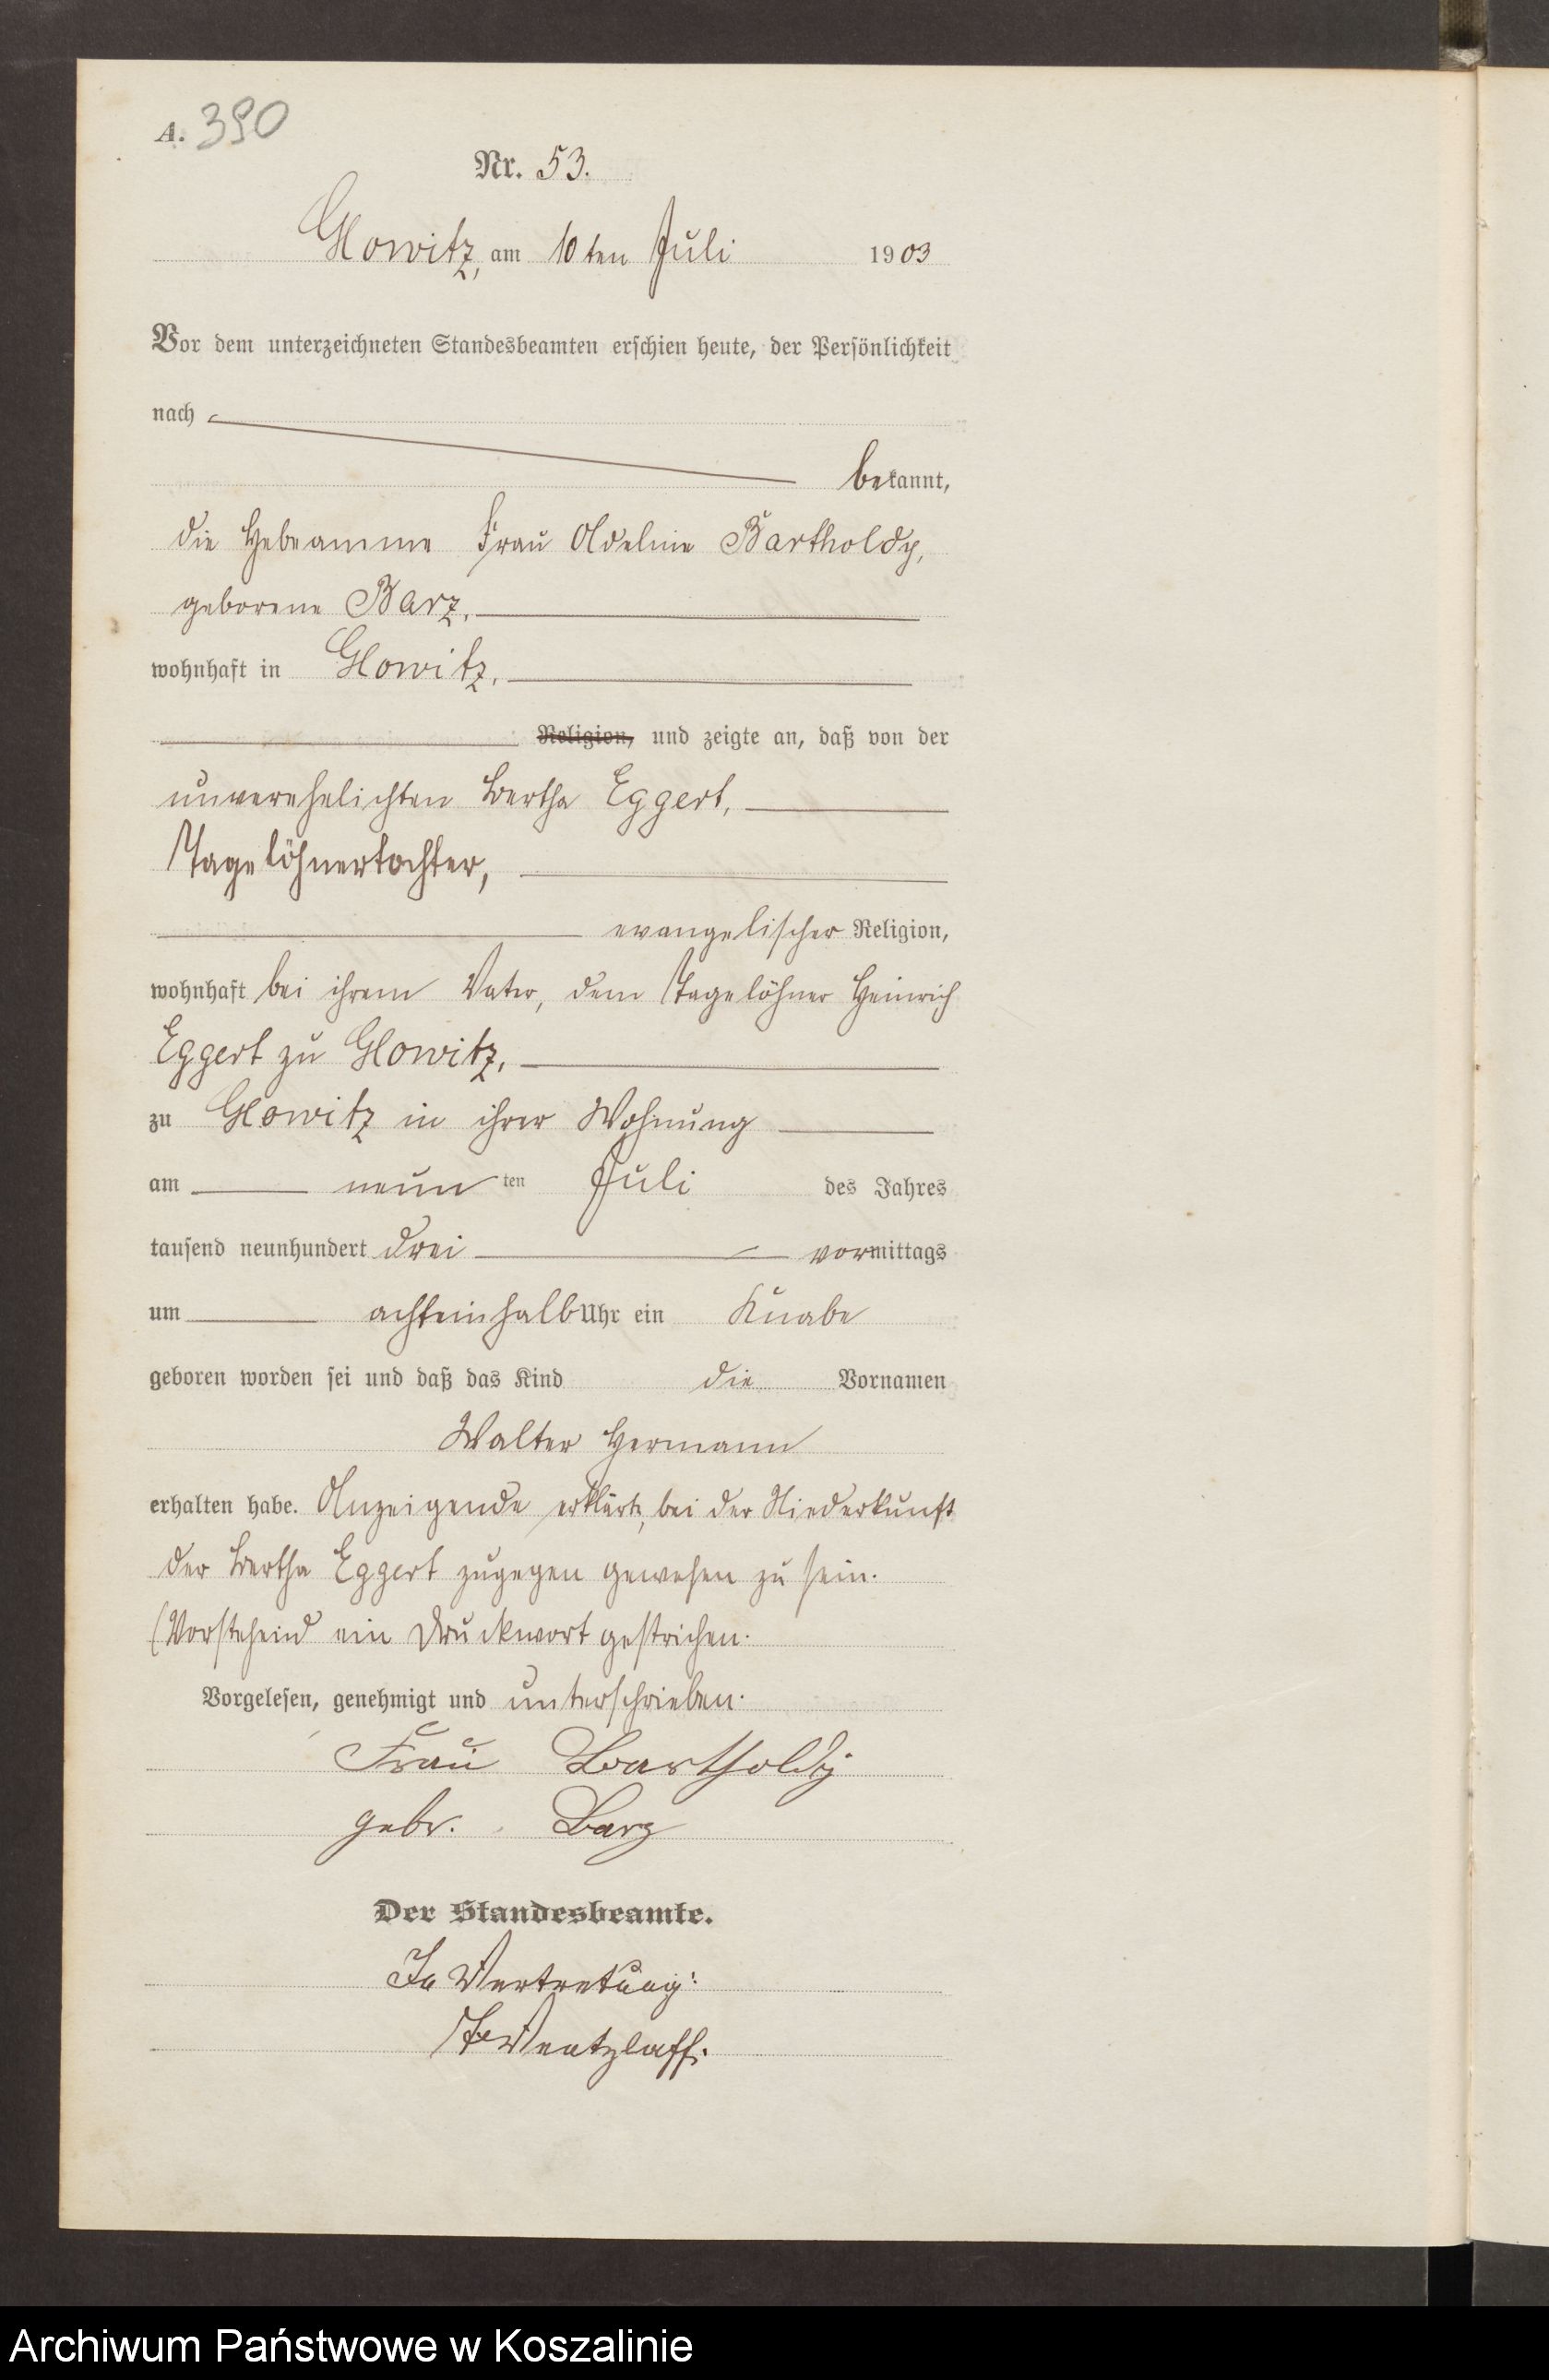 A. 390
Nr. 53.
Glowitz, am 10ten Juli 1903
Vor dem unterzeichneten Standesbeamten erschien heute, der Persönlichkeit
nach
bekannt,
die Hebeamme Frau Adeline Bartholdy,
geborene Barz,
wohnhaft in Glowitz,
Religion, und zeigte an, daß von der
unverehelichten Bertha Eggert,
Tagelöhnertochter,
evangelischer Religion,
wohnhaft bei ihrem Vater, dem Tagelöhner Heinrich
Eggert zu Glowitz,
zu Glowitz in ihrer Wohnung
am neunten Juli des Jahres
tausend neunhundert drei vormittags
um achteinhalb Uhr ein Knabe
geboren worden sei und daß das Kind die Vornamen
Walter Hermann
erhalten habe. Anzeigende erklärte, bei der Niederkunft
der Bertha Eggert zugegen gewesen zu sein.
(Vorstehend ein Druckwort gestrichen.
Vorgelesen, genehmigt und unterschrieben.
Frau Bartholdy
gebr. Barz
Der Standesbeamte.
In Vertretung:
Wentzlaff.
Archiwum Państwowe w Koszalinie